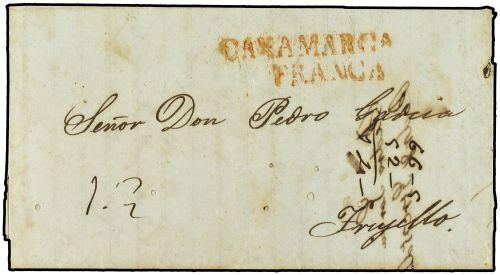 CAXAMARCA
FRANCA
Señor Don Pedro Garcia
1.2
Trujillo.